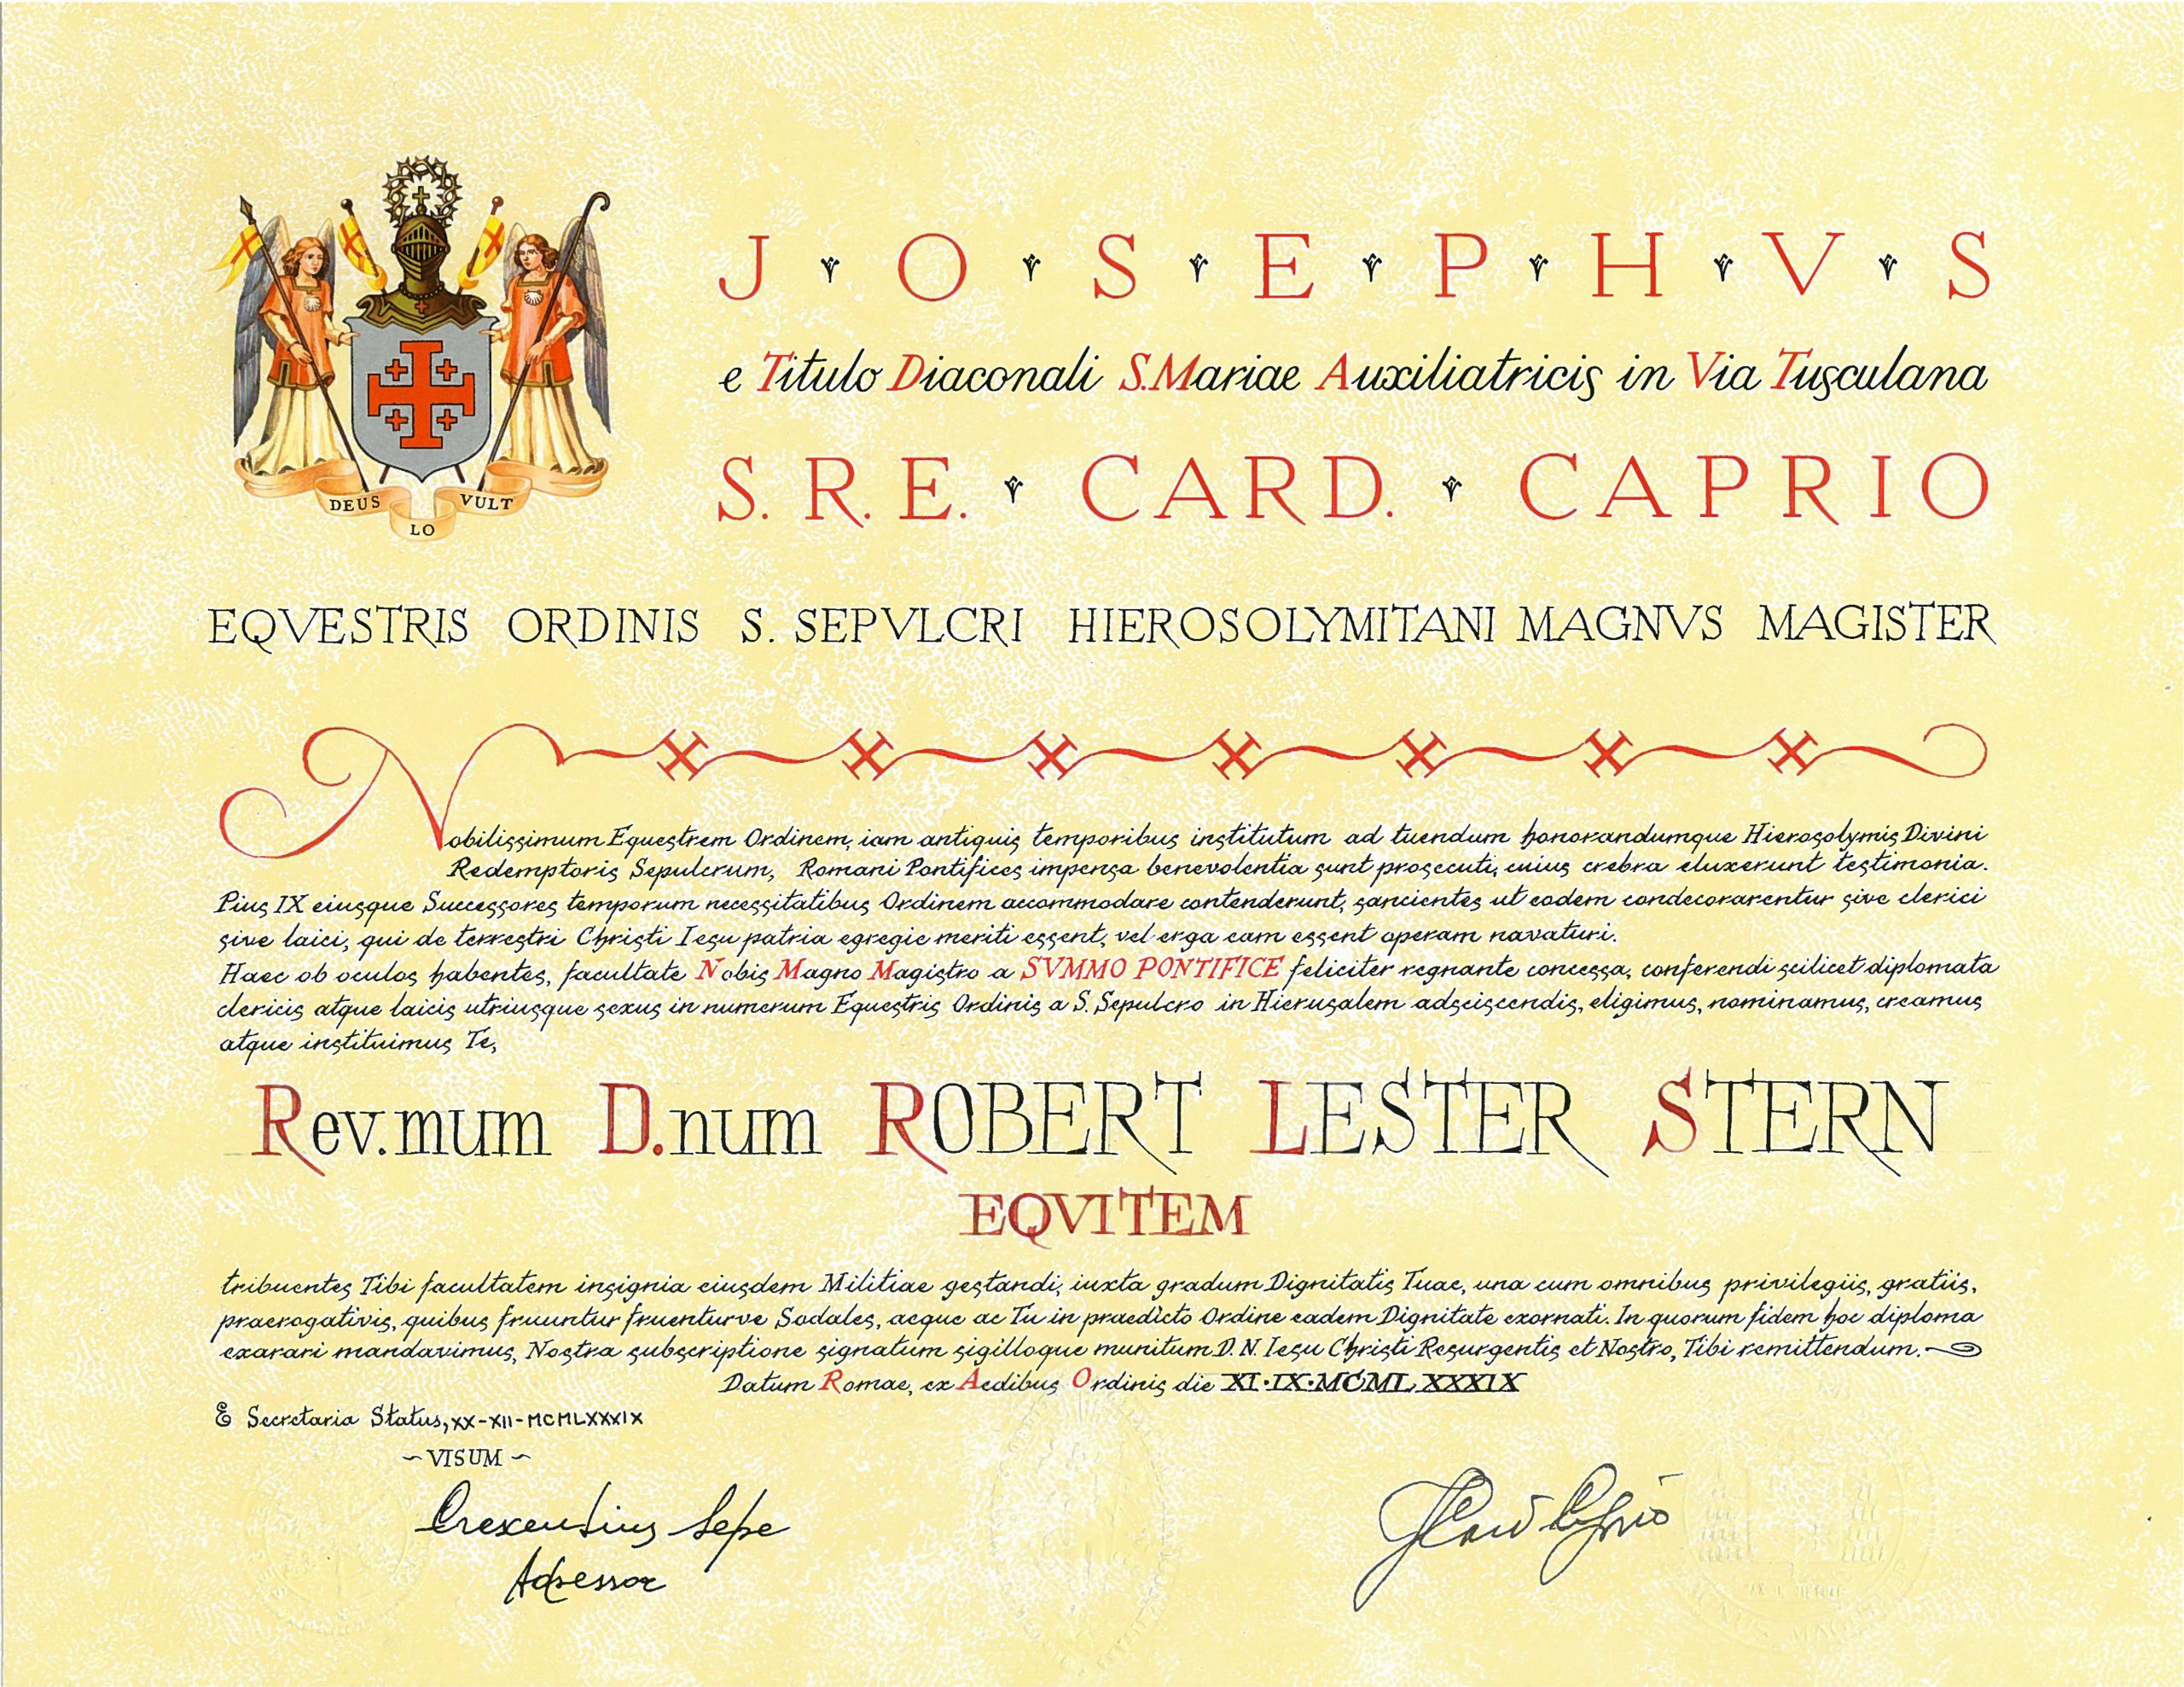 DEUS LO VULT
J·O·S·E·P·H·V·S
e Titulo Diaconali S.Mariae Auxiliatricis in Via Tusculana
S.R.E. · CARD. · CAPRIO
EQVESTRIS ORDINIS S. SEPVLCRI HIEROSOLYMITANI MAGNVS MAGISTER
Nobilissimum Equestrem Ordinem, iam antiquis temporibus institutum ad tuendum honorandumque Hierosolymis Divini
Redemptoris Sepulcrum, Romani Pontifices impensa benevolentia sunt prosecuti, cuius crebra eluxerunt testimonia.
Pius IX eiusque Successores temporum necessitatibus Ordinem accommodare contenderunt, sancientes ut eodem condecorarentur sive clerici
sive laici, qui de terrestri Christi Iesu patria egregie meriti essent, vel erga eam essent operam navaturi.
Haec ob oculos habentes, facultate Nobis Magno Magistro a SVMMO PONTIFICE feliciter regnante concessa, conferendi scilicet diplomata
clericis atque laicis utriusque sexus in numerum Equestris Ordinis a S. Sepulcro in Hierusalem adsciscendis, eligimus, nominamus, creamus
atque instituimus Te,
Rev.mum D.num ROBERT LESTER STERN
EQVITEM
tribuentes Tibi facultatem insignia eiusdem Militiae gestandi, iuxta gradum Dignitatis Tuae, una cum omnibus privilegiis, gratiis,
praerogativis, quibus fruuntur fruenturve Sodales, aeque ac Tu in praedicto Ordine eadem Dignitate exornati. In quorum fidem hoc diploma
exarari mandavimus, Nostra subscriptione signatum sigilloque munitum D. N. Iesu Christi Resurgentis et Nostro, Tibi remittendum.
Datum Romae, ex Aedibus Ordinis die XI·IX·MCMLXXXIX
E Secretaria Status, XX-XII-MCMLXXXIX
~VISUM~
Crescentius Sepe
Adsessor